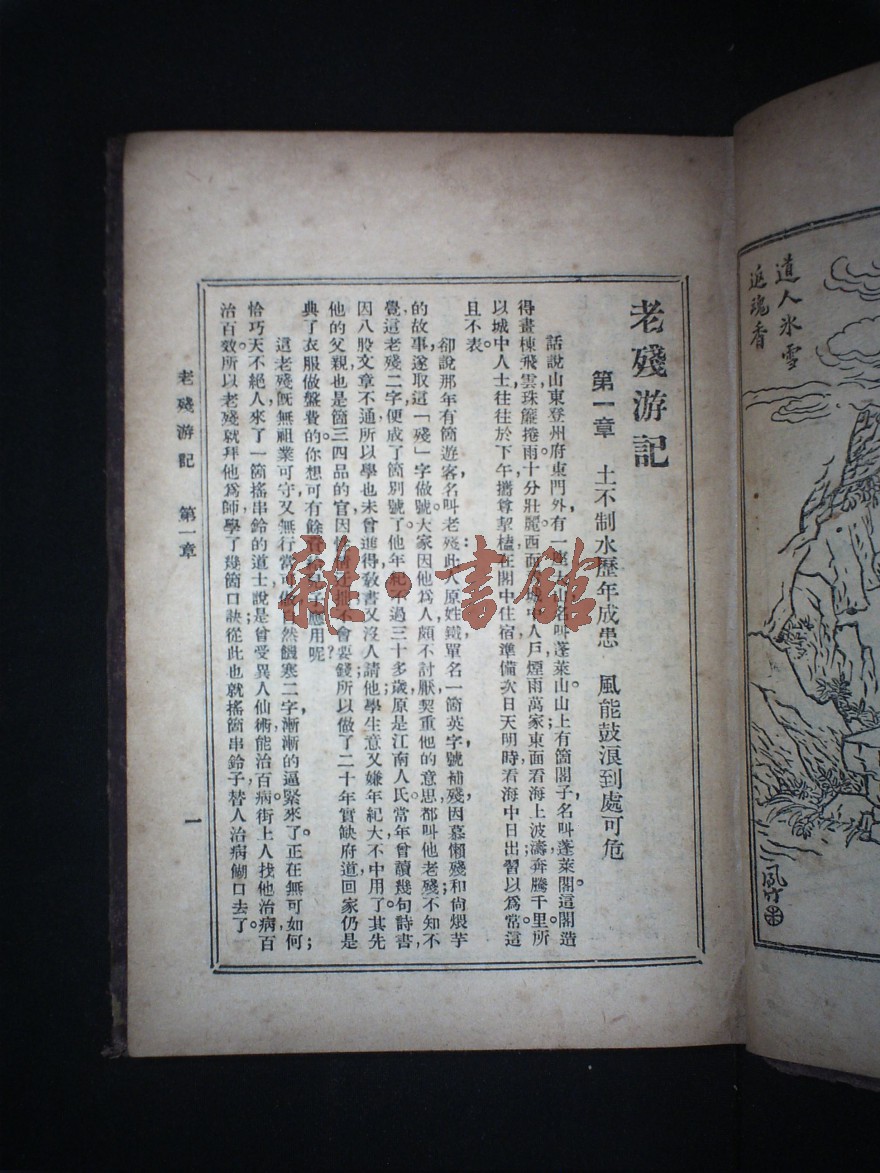 道人冰雪
返魂香
老殘游記
第一章 土不制水歷年成患 風能鼓浪到處可危
話說山東登州府東門外,有一座大山,名叫蓬萊山。山上有箇閣子,名叫蓬萊閣。這閣造
得畫棟飛雲,珠簾捲雨,十分壯麗。西面城中人戶,煙雨萬家;東面看海上波濤,奔騰千里。所
以城中人士往往於下午攜尊挈榼在閣中住宿,準備次日天明時看海中日出。習以爲常,這
且不表。
卻說那年有箇遊客,名叫老殘。此人原姓鐵,單名一箇英字,號補殘。因慕懶殘和尚煨芋
的故事,遂取這「殘」字做號。大家因他爲人頗不討厭,契重他的意思,都叫他老殘。不知不
覺,這老殘二字便成了箇別號了。他年紀不過三十多歲,原是江南人氏。當年曾讀幾句詩書,
因八股文章不通,所以學也未曾進得。教書又沒人請他;學生意又嫌年紀大,不中用了。其先
他的父親也是箇三四品的官,因性情迂拙,不會要錢,所以做了二十年實缺府道,回家仍是
典了衣服做盤費的。你想可有餘資給兒子應用呢?
這老殘旣無祖業可守,又無行當可做,自然饑寒二字漸漸的逼緊來了。正在無可如何,
恰巧天不絕人,來了一箇搖串鈴的道士,說是曾受異人仙術,能治百病,街上人找他治病,百
治百效。所以老殘就拜他爲師,學了幾箇口訣,從此也就搖箇串鈴子,替人治病餬口去了。
老殘游記 第一章
一
雜·書館